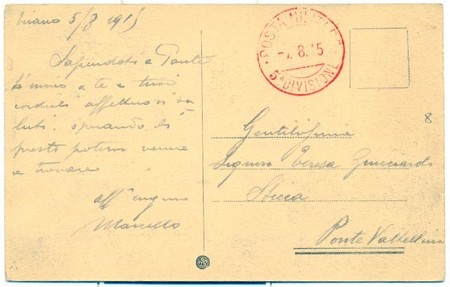 Tirano 5/8 1915
Sapendoti a Ponte
a te e tuoi
cordiali affettuosi sa
luti, sperando di
presto potervi venire
a trovare
aff. cugino
Marcello
POSTA MILITARE
7.8.15
5ª DIVISIONE
8
Gentilissima
Signora Teresa Guicciardi
Ponte Valtellina